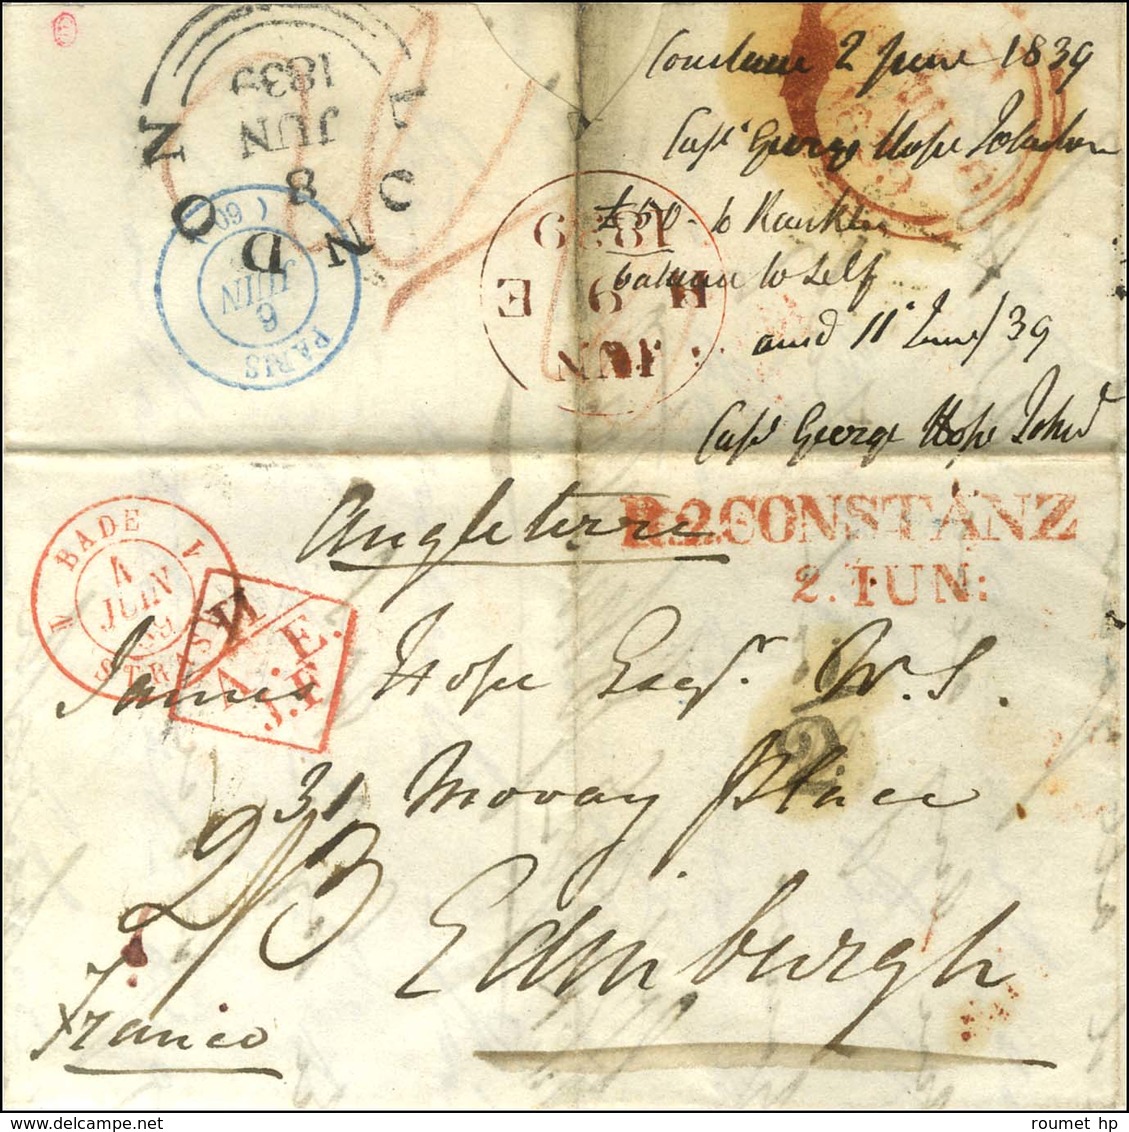 Constance 2 June 1839
Capt George Hope Johnstone
£60 - to Rankin
balance to self
ansd 11 June/39
Capt George Hope Johnd
LONDON
8
JUN
1839
PARIS
6
JUIN
(60)
H 9 E
JUN
1839
Angleterre
R.2.CONSTANZ
2. IUN:
BADE
4
JUIN
39
STRASB
A.E.
J.F.
James Hope Esqr. W.S.
2
31 Moray Place
2/3
Edinburgh
Franco
© roumet hp